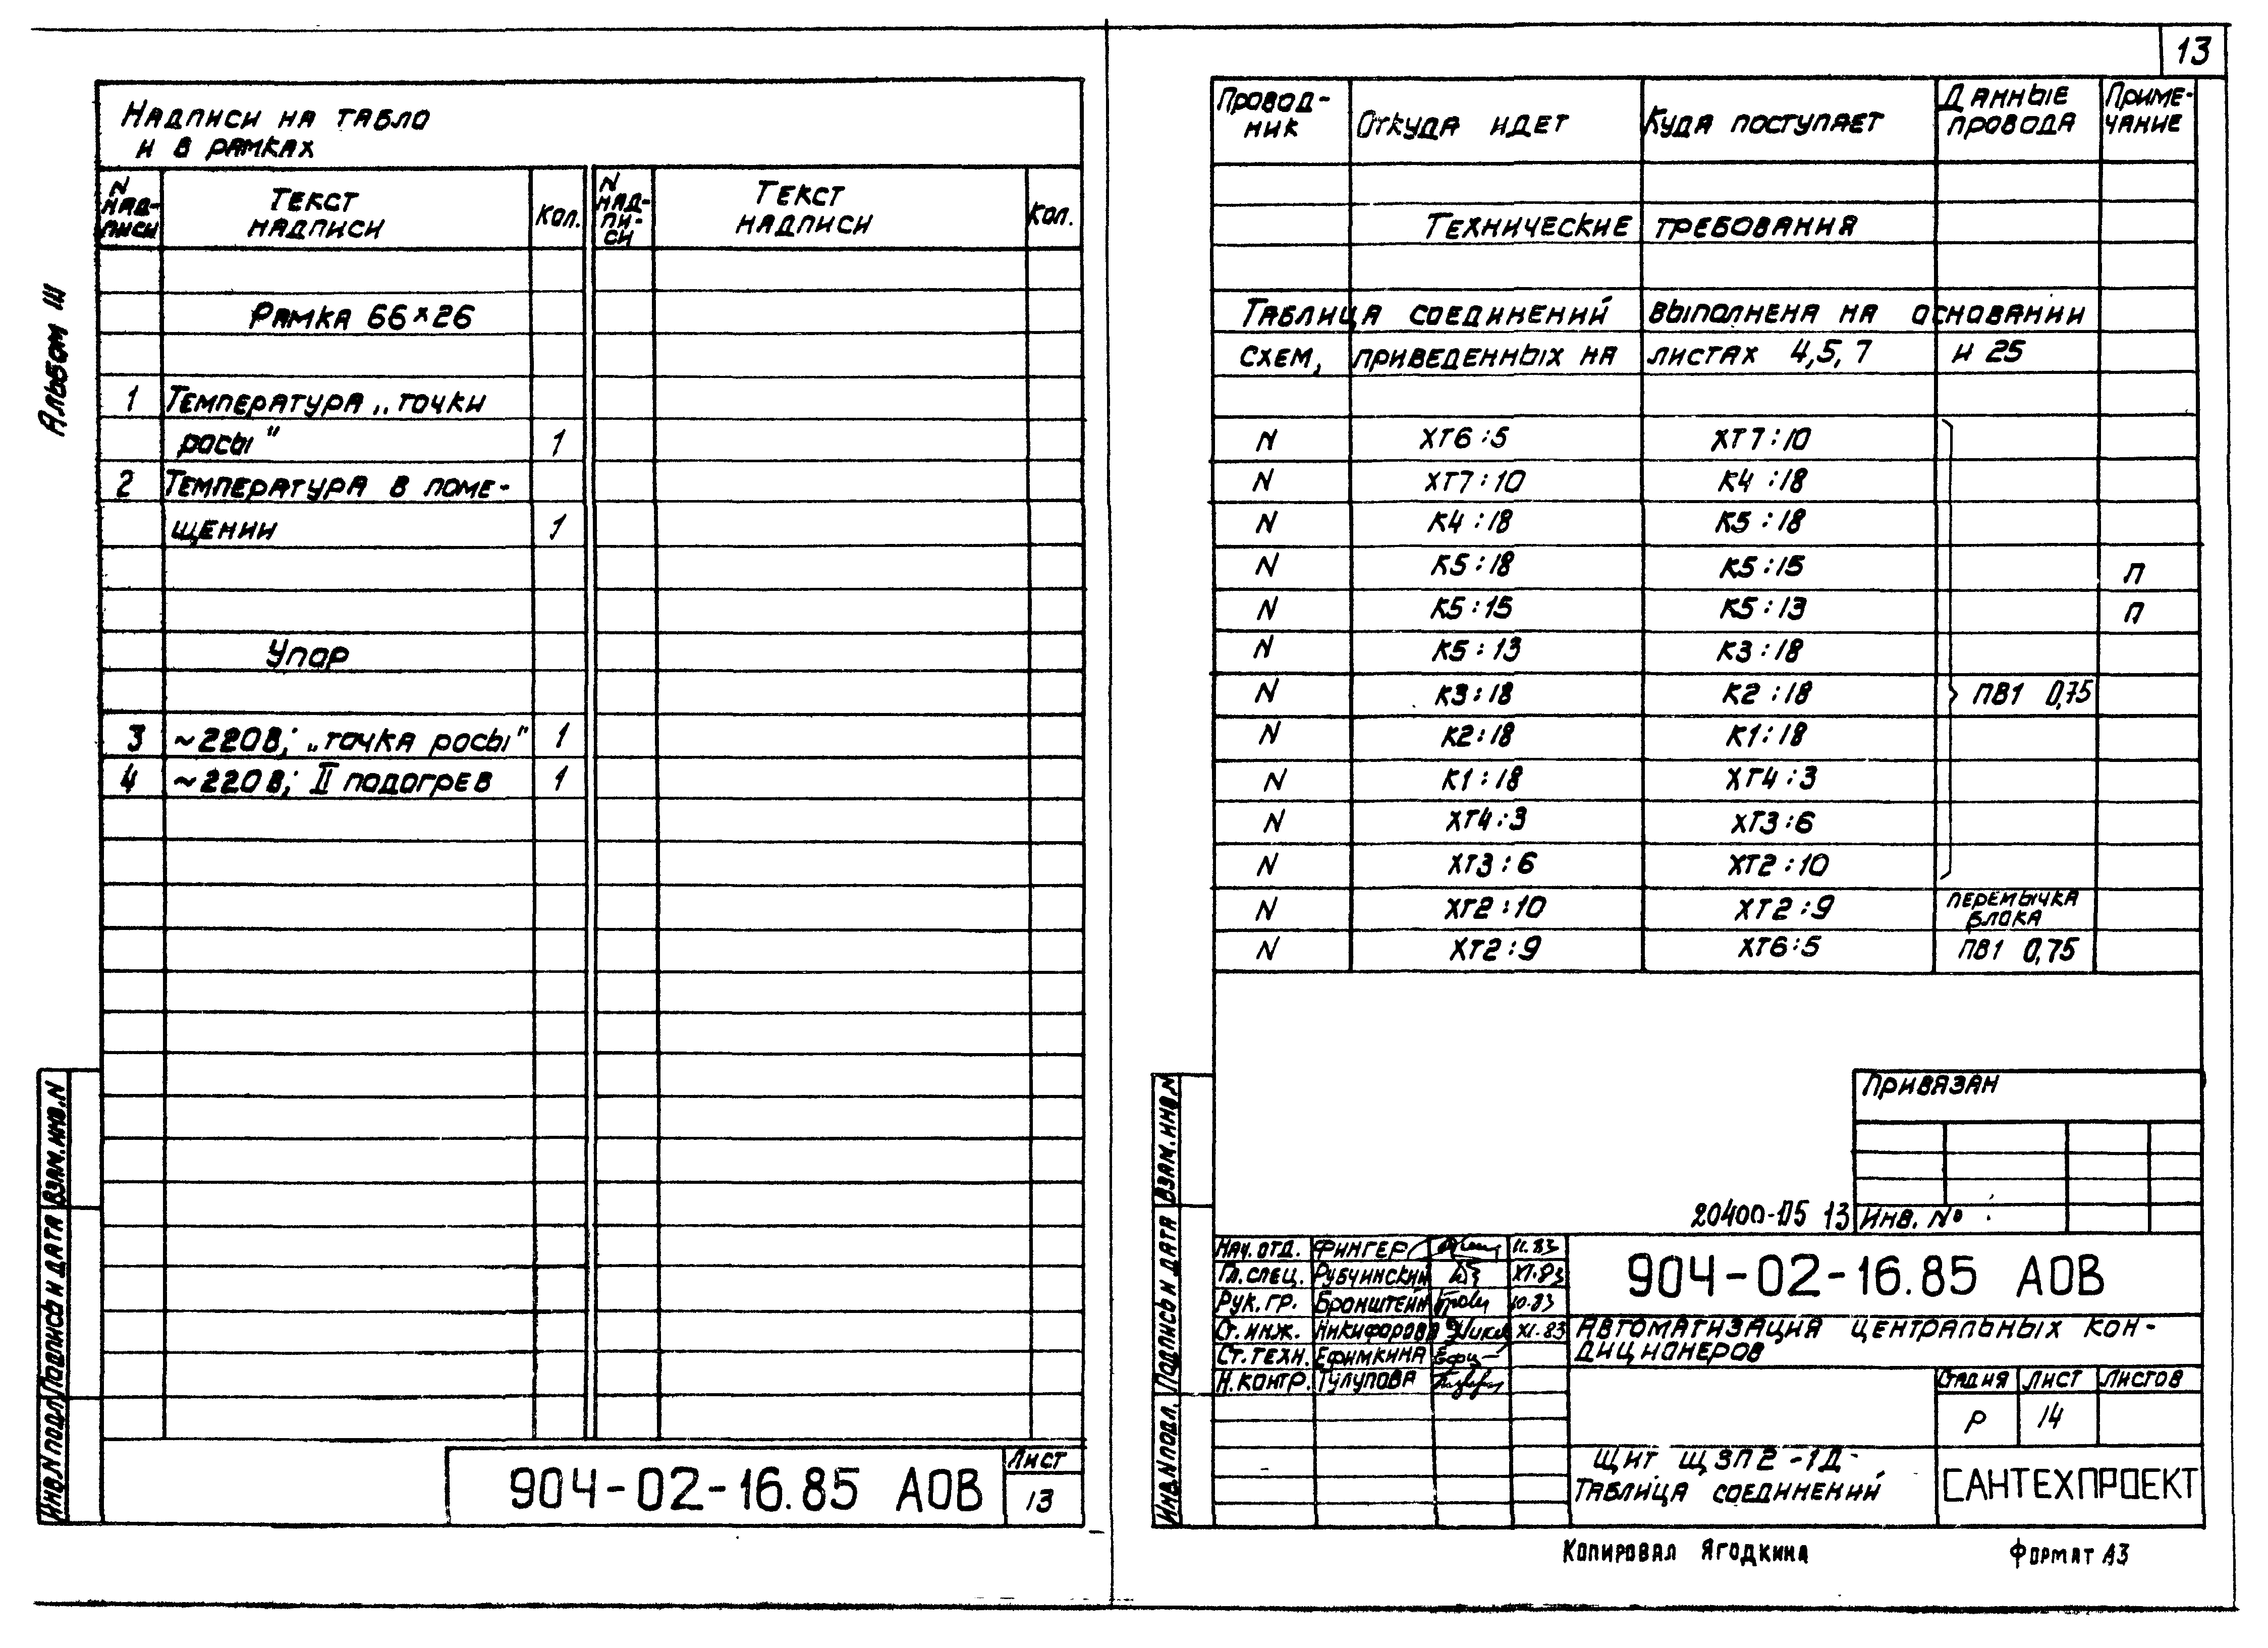 13
Альбом III
Надписи на табло
и в рамках
N надписи Текст надписи Кол. N надписи Текст надписи Кол.
Рамка 66×26
1 Температура „точки
росы" 1
2 Температура в поме-
щении 1
Упор
3 ~220В; „точка росы" 1
4 ~220В; II подогрев 1
Инв.N подл. Подпись и дата Взам.инв.N
904-02-16.85 АОВ
Лист
13
Провод-ник Откуда идет Куда поступает Данные провода Приме-чание
Технические требования
Таблица соединений выполнена на основании
схем, приведенных на листах 4,5,7 и 25
N ХТ6:5 ХТ7:10
N ХТ7:10 К4:18
N К4:18 К5:18
N К5:18 К5:15 п
N К5:15 К5:13 п
N К5:13 К3:18
N К3:18 К2:18 ПВ1 0,75
N К2:18 К1:18
N К1:18 ХТ4:3
N ХТ4:3 ХТ3:6
N ХТ3:6 ХТ2:10
N ХТ2:10 ХТ2:9 перемычка блока
N ХТ2:9 ХТ6:5 ПВ1 0,75
Инв.N подл. Подпись и дата Взам.инв.N
Привязан
20400-05 13
Инв. №
Нач. отд. Фингер 11.83
Гл. спец. Рубчинский XI.83
Рук. гр. Бронштейн 10.83
Ст. инж. Никифорова XI.83
Ст. техн. Ефимкина
Н. контр. Тулупова
904-02-16.85 АОВ
Автоматизация центральных кон-
диционеров
Стадия Лист Листов
Р 14
Щит ЩЗП2-1Д
Таблица соединений
САНТЕХПРОЕКТ
Копировал Ягодкина Формат А3